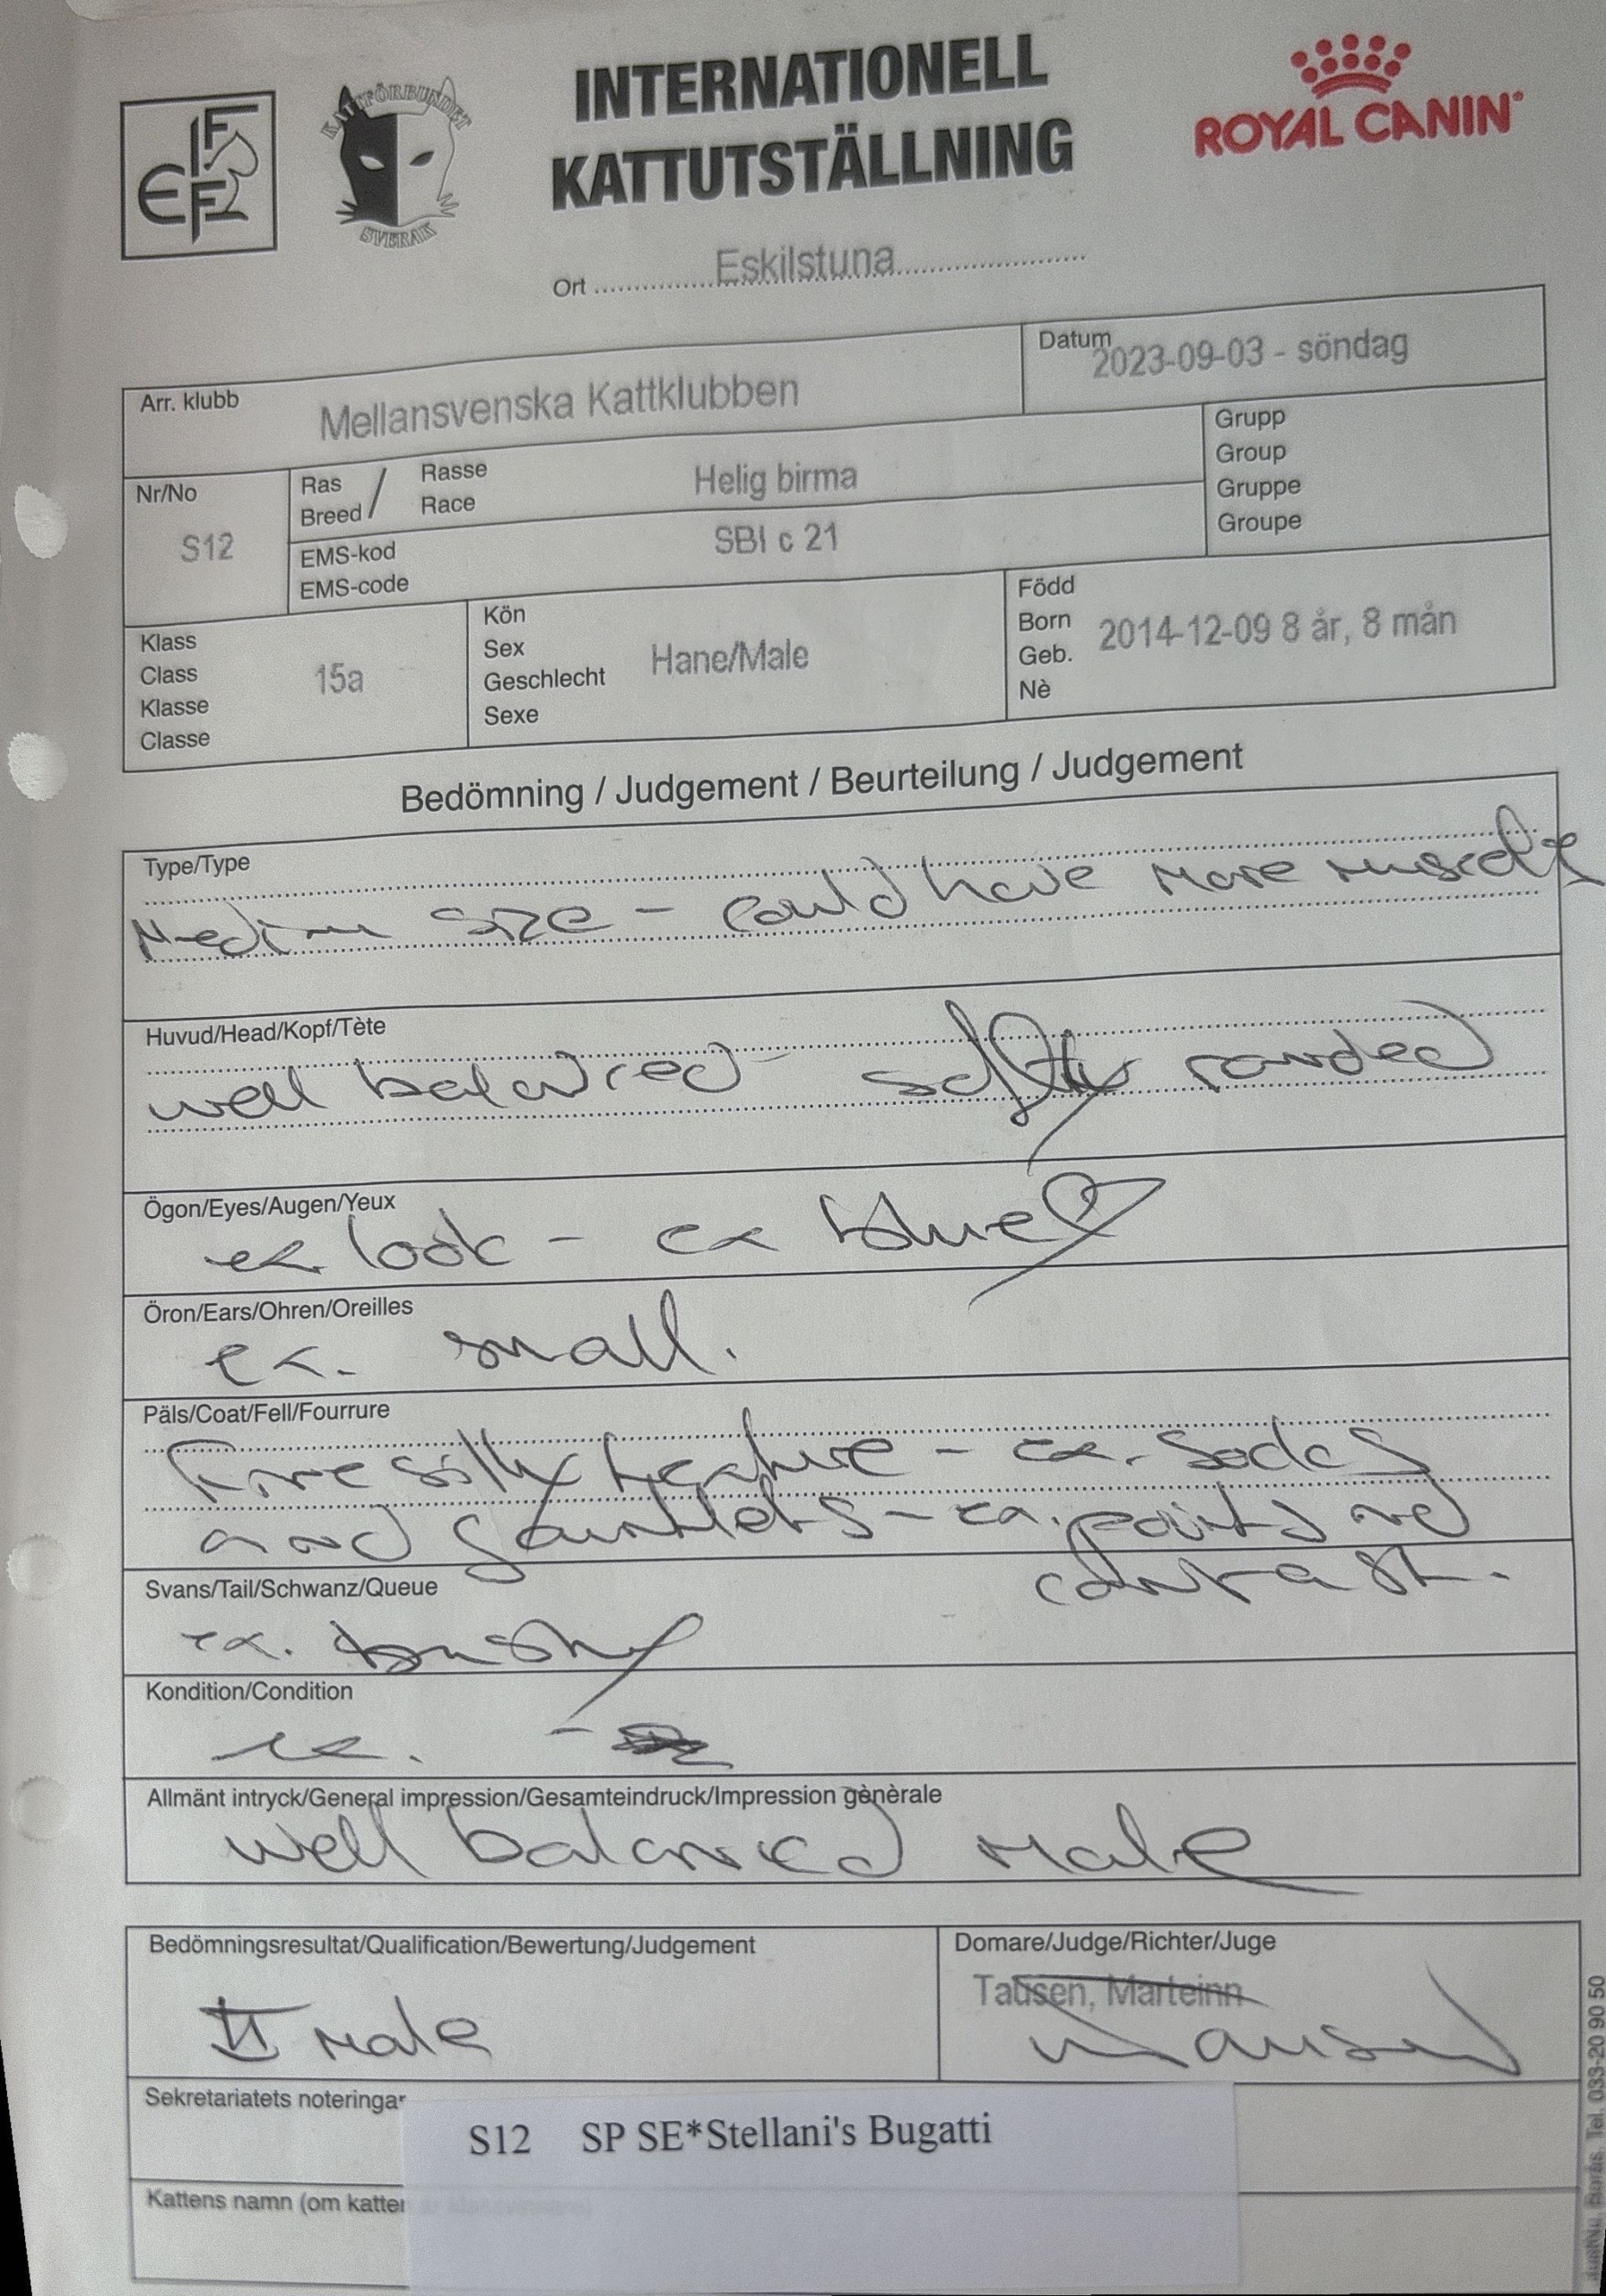 FIFe
KATTFÖRBUNDET
SVERAK
INTERNATIONELL
KATTUTSTÄLLNING
ROYAL CANIN
Ort Eskilstuna
Arr. klubb Mellansvenska Kattklubben
Datum 2023-09-03 - söndag
Nr/No S12
Ras Breed / Rasse Race Helig birma
EMS-kod EMS-code SBI c 21
Grupp
Group
Gruppe
Groupe
Klass
Class
Klasse
Classe
15a
Kön
Sex
Geschlecht
Sexe
Hane/Male
Född
Born
Geb.
Nè
2014-12-09 8 år, 8 mån
Bedömning / Judgement / Beurteilung / Judgement
Type/Type
Medium size - could have more
Huvud/Head/Kopf/Tète
well balanced - softly rounded
Ögon/Eyes/Augen/Yeux
ex look - ex blue
Öron/Ears/Ohren/Oreilles
ex. small.
Päls/Coat/Fell/Fourrure
Fine silky texture - ex. socks
and gauntlets - ex. points and
contrast.
Svans/Tail/Schwanz/Queue
ex. bushy
Kondition/Condition
ex. -
Allmänt intryck/General impression/Gesamteindruck/Impression gènèrale
well balanced male
Bedömningsresultat/Qualification/Bewertung/Judgement
II male
Domare/Judge/Richter/Juge
Tausen, Marteinn
Sekretariatets noteringar
S12 SP SE*Stellani's Bugatti
Kattens namn (om katten
Borås. Tel. 033-20 90 50